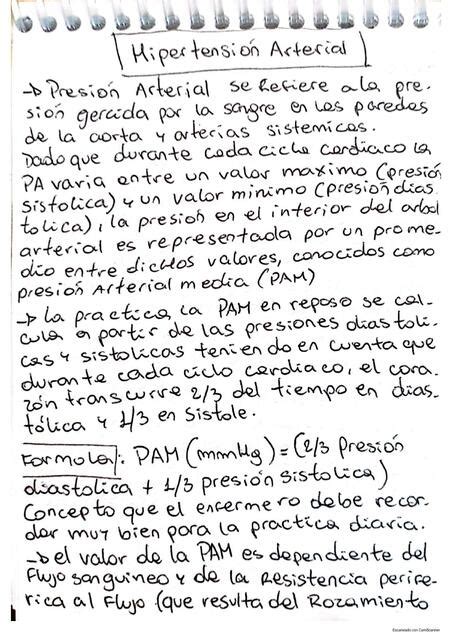 Hipertensión Arterial
→ Presión Arterial se Refiere a la pre-
sión gercida por la sangre en las paredes
de la aorta y arterias sistemicas.
Dado que durante cada ciclo cardiaco la
PA varia entre un valor maximo (presión
sistolica) y un valor minimo (presion dias
tolica), la presion en el interior del arbol
arterial es representada por un prome-
dio entre dichos valores, conocidos como
presion Arterial media (PAM)
→ la practica, la PAM en reposo se cal-
cula a partir de las presiones diastoli-
cas y sistolicas teniendo en cuenta que
durante cada ciclo cardiaco, el cora-
zón transcurre 2/3 del tiempo en dias-
tólica y 1/3 en Sistole.
Formula: PAM (mmHg) = (2/3 Presión
diastolica + 1/3 presión sistolica)
Concepto que el enfermero debe recor-
dar muy bien para la practica diaria.
→ el valor de la PAM es dependiente del
Flujo sanguineo y de la Resistencia perife-
rica al Flujo (que resulta del Rozamiento
Escaneado con CamScanner